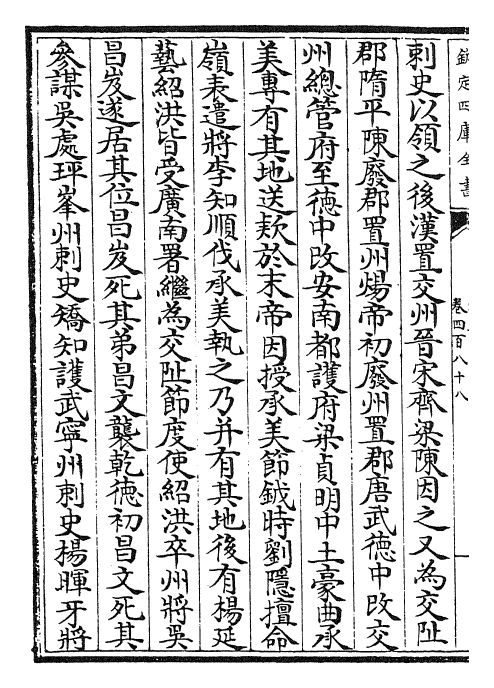 欽定四庫全書
卷四百八十八
刺史以領之後漢置交州晉宋齊梁陳因之又為交阯
郡隋平陳廢郡置州煬帝初廢州置郡唐武德中改交
州總管府至德中改安南都護府梁貞明中土豪曲承
美專有其地送款於末帝因授承美節鉞時劉隱擅命
嶺表遣將李知順伐承美執之乃并有其地後有楊延
藝紹洪皆受廣南署繼為交阯節度使紹洪卒州將吳
昌岌遂居其位昌岌死其弟昌文襲乾徳初昌文死其
參謀吳處玶峯州刺史矯知護武寧州刺史楊暉牙將